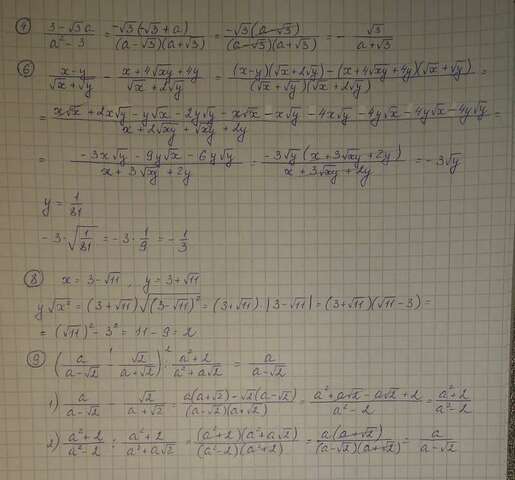 ④ (3 - √3a)/(a² - 3) = (-√3(-√3 + a))/((a - √3)(a + √3)) = (-√3(a - √3))/((a - √3)(a + √3)) = - √3/(a + √3)
⑥ (x - y)/(√x + √y) - (x + 4√xy + 4y)/(√x + 2√y) = ((x - y)(√x + 2√y) - (x + 4√xy + 4y)(√x + √y))/((√x + √y)(√x + 2√y)) =
= (x√x + 2x√y - y√x - 2y√y - x√x - x√y - 4x√y - 4y√x - 4y√x - 4y√y)/(x + 2√xy + √xy + 2y) =
= (-3x√y - 9y√x - 6y√y)/(x + 3√xy + 2y) = (-3√y(x + 3√xy + 2y))/(x + 3√xy + 2y) = -3√y
y = 1/81
-3·√(1/81) = -3·1/9 = -1/3
⑧ x = 3 - √11, y = 3 + √11
y√x² = (3 + √11)√(3 - √11)² = (3 + √11)·|3 - √11| = (3 + √11)(√11 - 3) =
= (√11)² - 3² = 11 - 9 = 2
⑨ (a/(a - √2) -¹ √2/(a + √2)) :² (a² + 2)/(a² + a√2) = a/(a - √2)
1) a/(a - √2) - √2/(a + √2) = (a(a + √2) - √2(a - √2))/((a - √2)(a + √2)) = (a² + a√2 - a√2 + 2)/(a² - 2) = (a² + 2)/(a² - 2)
2) (a² + 2)/(a² - 2) : (a² + 2)/(a² + a√2) = ((a² + 2)(a² + a√2))/((a² - 2)(a² + 2)) = (a(a + √2))/((a - √2)(a + √2)) = a/(a - √2)